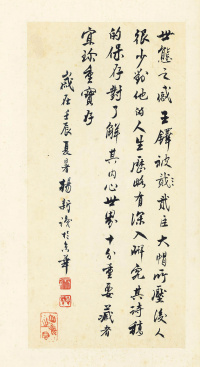 世態之感王鐸被貳臣大帽所壓後人
很少對他的人生歷略有深入研究其詩稿
的保存對了解其内心世界十分重要藏者
宜珍重寶存
歲在壬辰夏月楊新識於京華